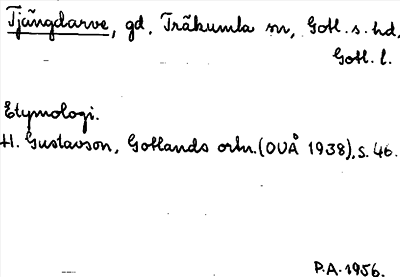 Tjängdarve, gd, Träkumla sn, Gotl. s. hd,
Gotl. l.
Etymologi.
H. Gustavson, Gotlands ortn. (OUÅ 1938), s. 46.
P.A. 1956.